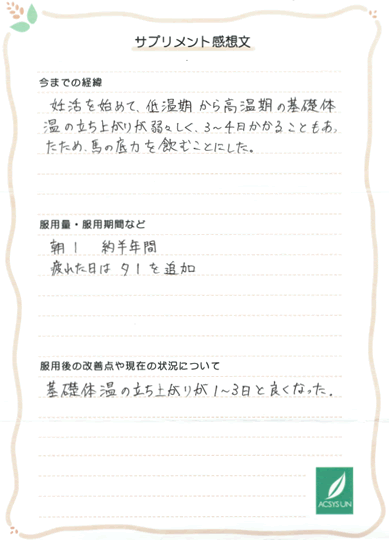 サプリメント感想文
今までの経緯
妊活を始めて、低温期から高温期の基礎体
温の立ち上がりが弱々しく、3〜4日かかることもあっ
たため、馬の底力を飲むことにした。
服用量・服用期間など
朝1 約半年間
疲れた日は夕1を追加
服用後の改善点や現在の状況について
基礎体温の立ち上がりが1〜3日と良くなった。
ACSYSUN